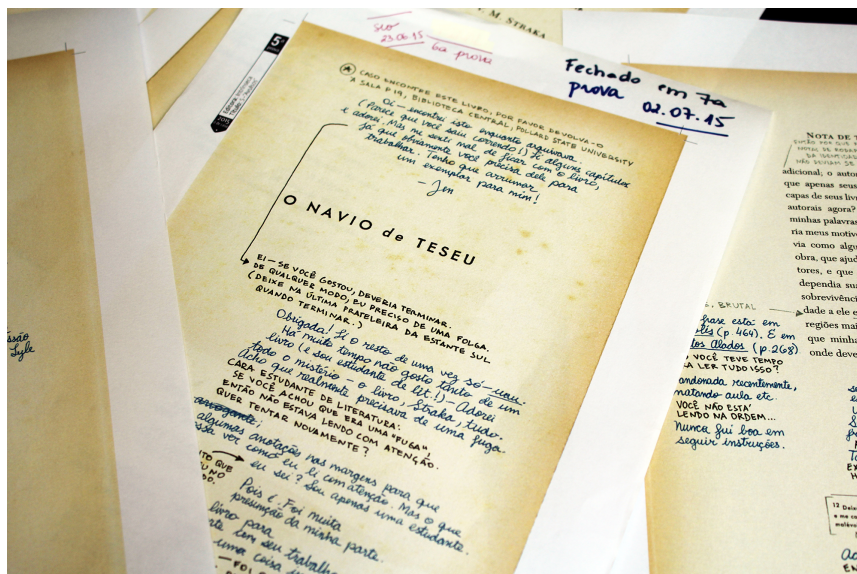 M. STRAKA
5ª
prova
Editora Intrínseca
slo
23.06.15
6a prova
Fechado em 7a
prova 02.07.15
CASO ENCONTRE ESTE LIVRO, POR FAVOR DEVOLVA-O
À SALA P19, BIBLIOTECA CENTRAL, POLLARD STATE UNIVERSITY
Oi – encontrei isto enquanto arquivava.
(Parece que você saiu correndo!) Li alguns capítulos
e adorei. Mas me senti mal de ficar com o livro,
já que obviamente você precisa dele para
trabalhar. Tenho que arrumar
um exemplar para mim!
– Jen
O NAVIO de TESEU
EI – SE VOCÊ GOSTOU, DEVERIA TERMINAR.
DE QUALQUER MODO, EU PRECISO DE UMA FOLGA.
(DEIXE NA ÚLTIMA PRATELEIRA DA ESTANTE SUL
QUANDO TERMINAR.)
Obrigada! Li o resto de uma vez só – uau.
Há muito tempo não gosto tanto de um
livro (e sou estudante de lit.!) – Adorei
todo o mistério – o livro, Straka, tudo.
Acho que realmente precisava de uma fuga.
CARA ESTUDANTE DE LITERATURA:
SE VOCÊ ACHOU QUE ERA UMA "FUGA",
ENTÃO NÃO ESTAVA LENDO COM ATENÇÃO.
QUER TENTAR NOVAMENTE?
arrogante;
algumas anotações nas margens para que
possa ver como eu li com atenção. Mas o que
eu sei? Sou apenas uma estudante.
ITO QUE
U NO
DO.
Pois é. Foi muita
presunção da minha parte.
livro para
te tem seu trabalho
uma coisa
– FOI
ssão
Lyle
NOTA DE
adicional; o autor
que apenas seus
capas de seus livr
autorais agora?
minhas palavras
ria meus motivo
via como algo
obra, que ajud
tores, e que
dependia sua
sobrevivênci
dade a ele e
regiões mai
que minha
onde deve
S, BRUTAL
frase está em
(p. 464). E em
tos Alados (p. 268)
VOCÊ TEVE TEMPO
A LER TUDO ISSO?
andonada recentemente,
matando aula etc.
VOCÊ NÃO ESTÁ
LENDO NA ORDEM...
Nunca fui boa em
seguir instruções.
12 Deix
e me co
malévo